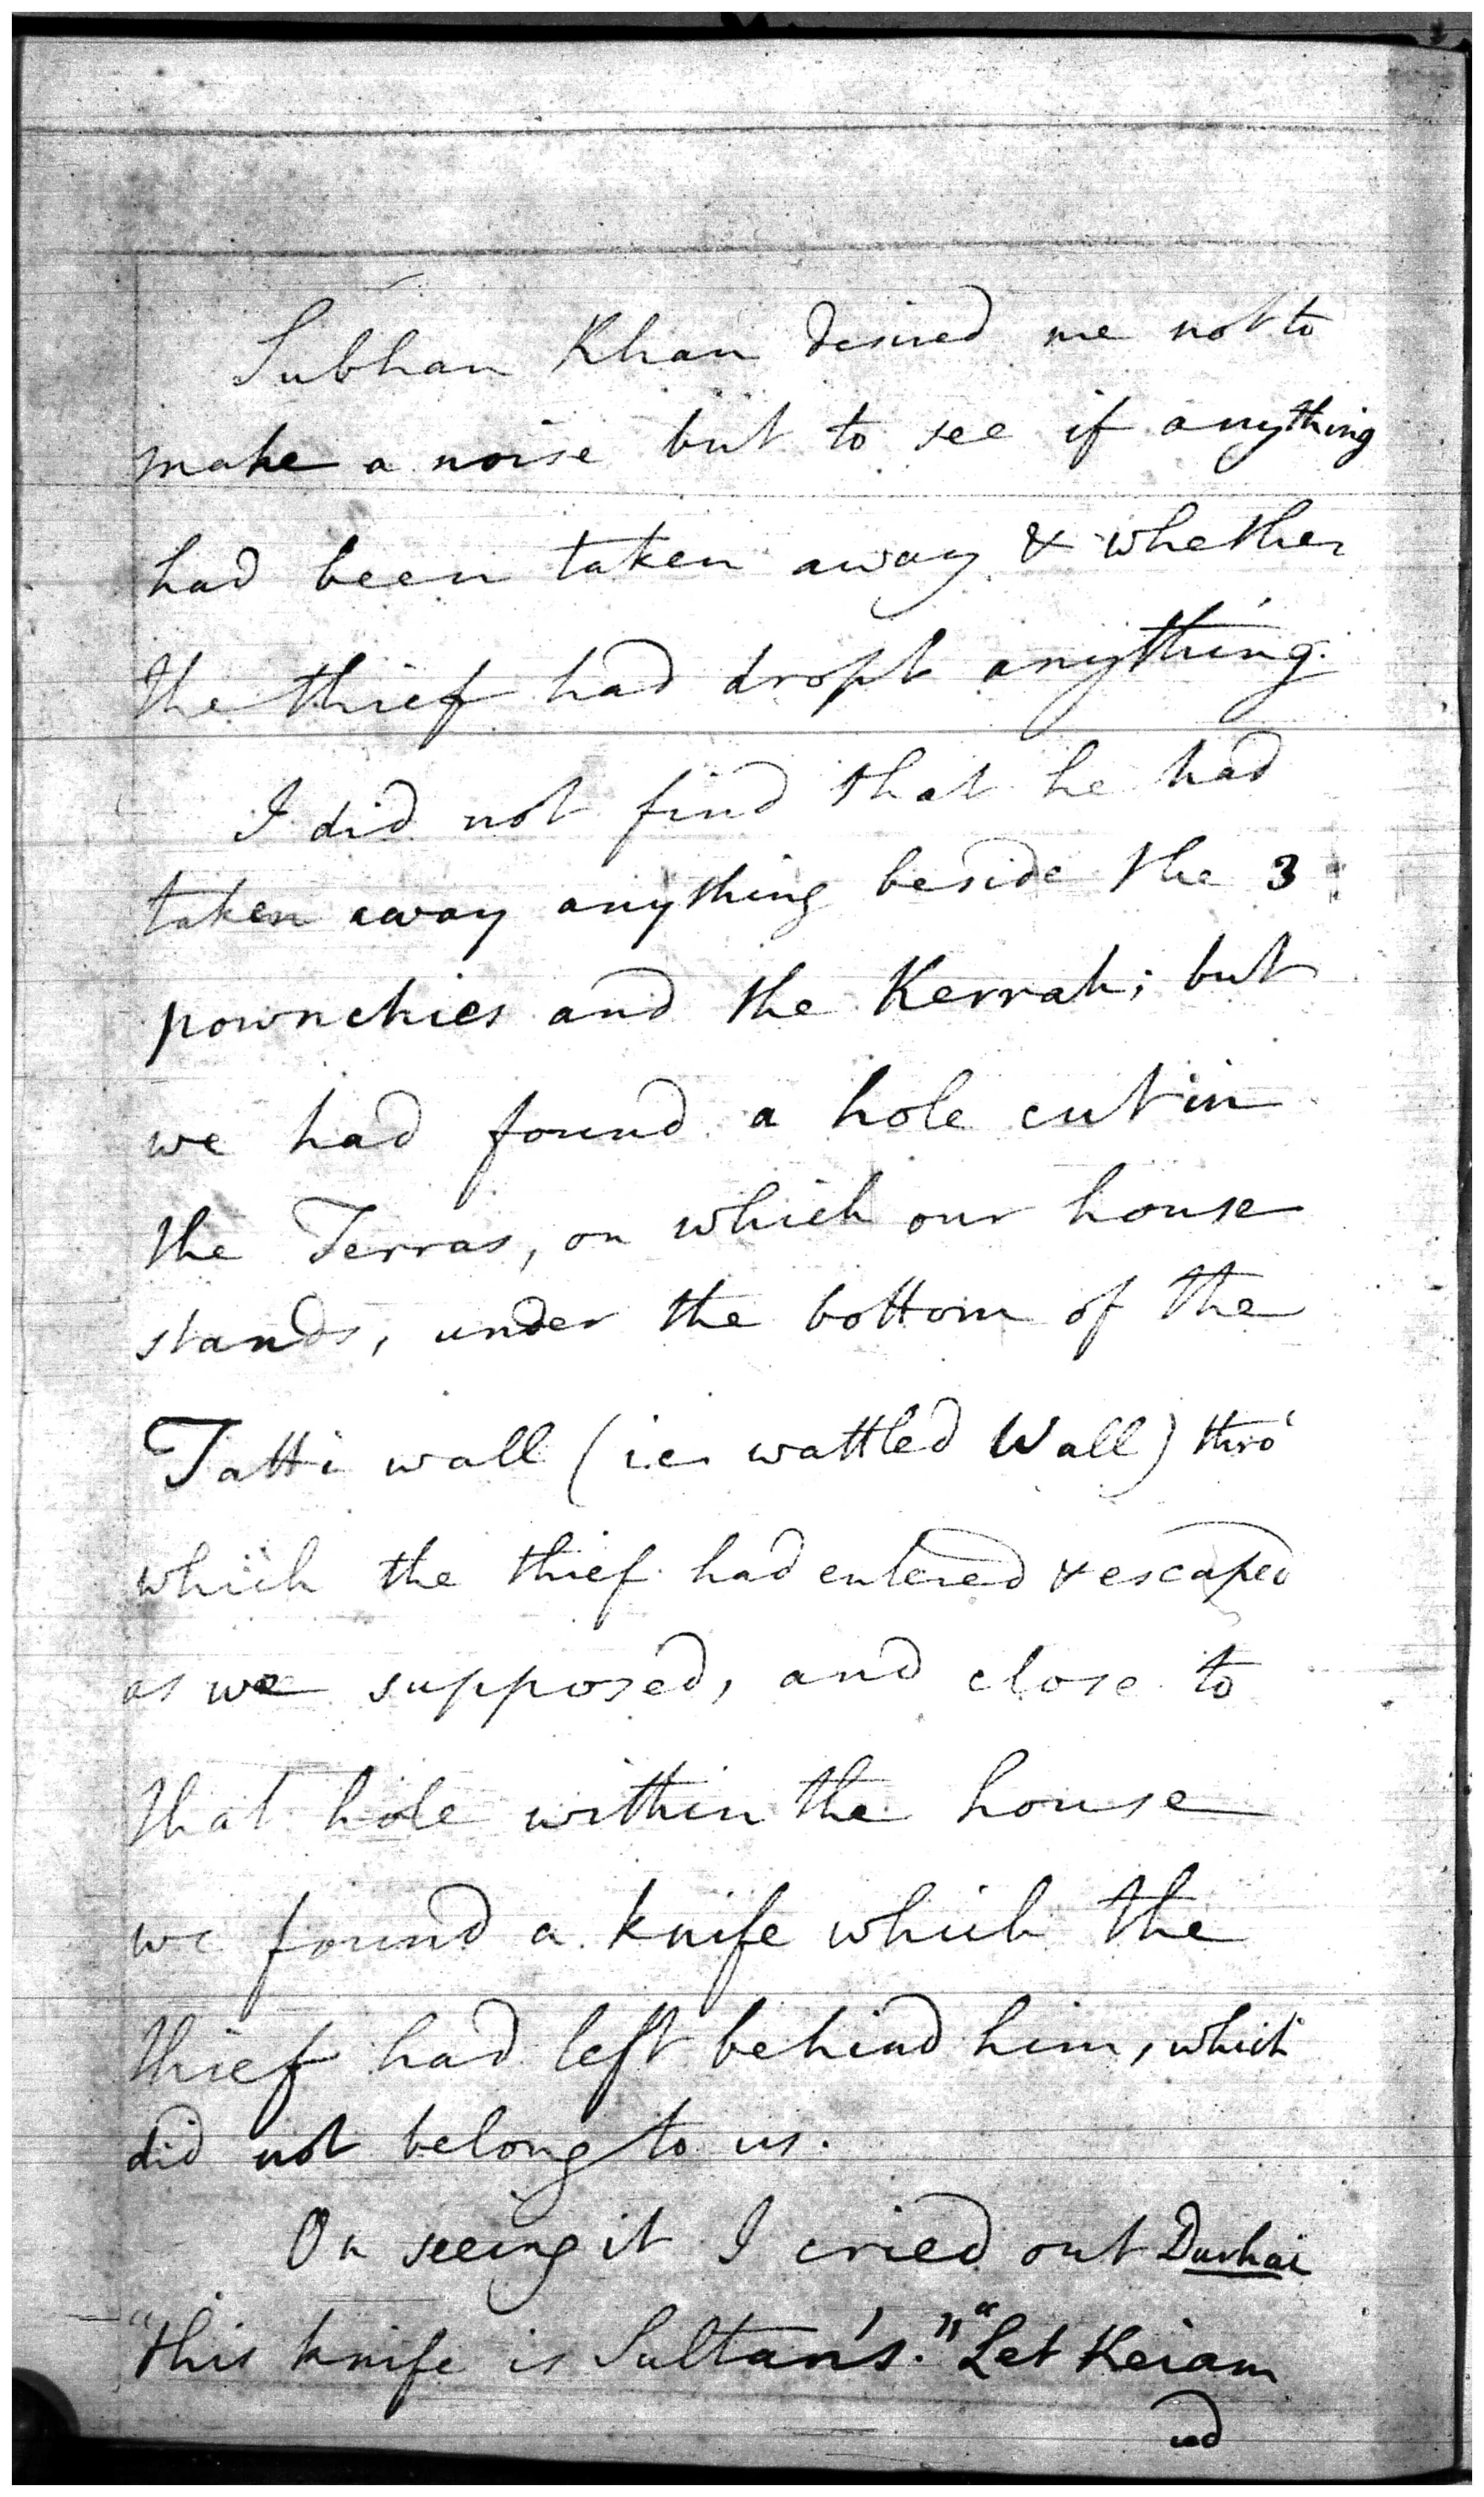 Subhan Khan desired me not to
make a noise but to see if anything
had been taken away & whether
the thief had dropt anything.
I did not find that he had
taken away anything beside the 3
pownchies and the Kerrah; but
we had found a hole cut in
the Terras, on which our house
stands, under the bottom of the
Tatti wall (i.e. wattled Wall) thro'
which the thief had entered & escaped
as we supposed, and close to
that hole within the house
we found a knife which the
thief had left behind him, which
did not belong to us.
On seeing it I cried out Durhai
"this knife is Sultan's." "Let Keiam
ud